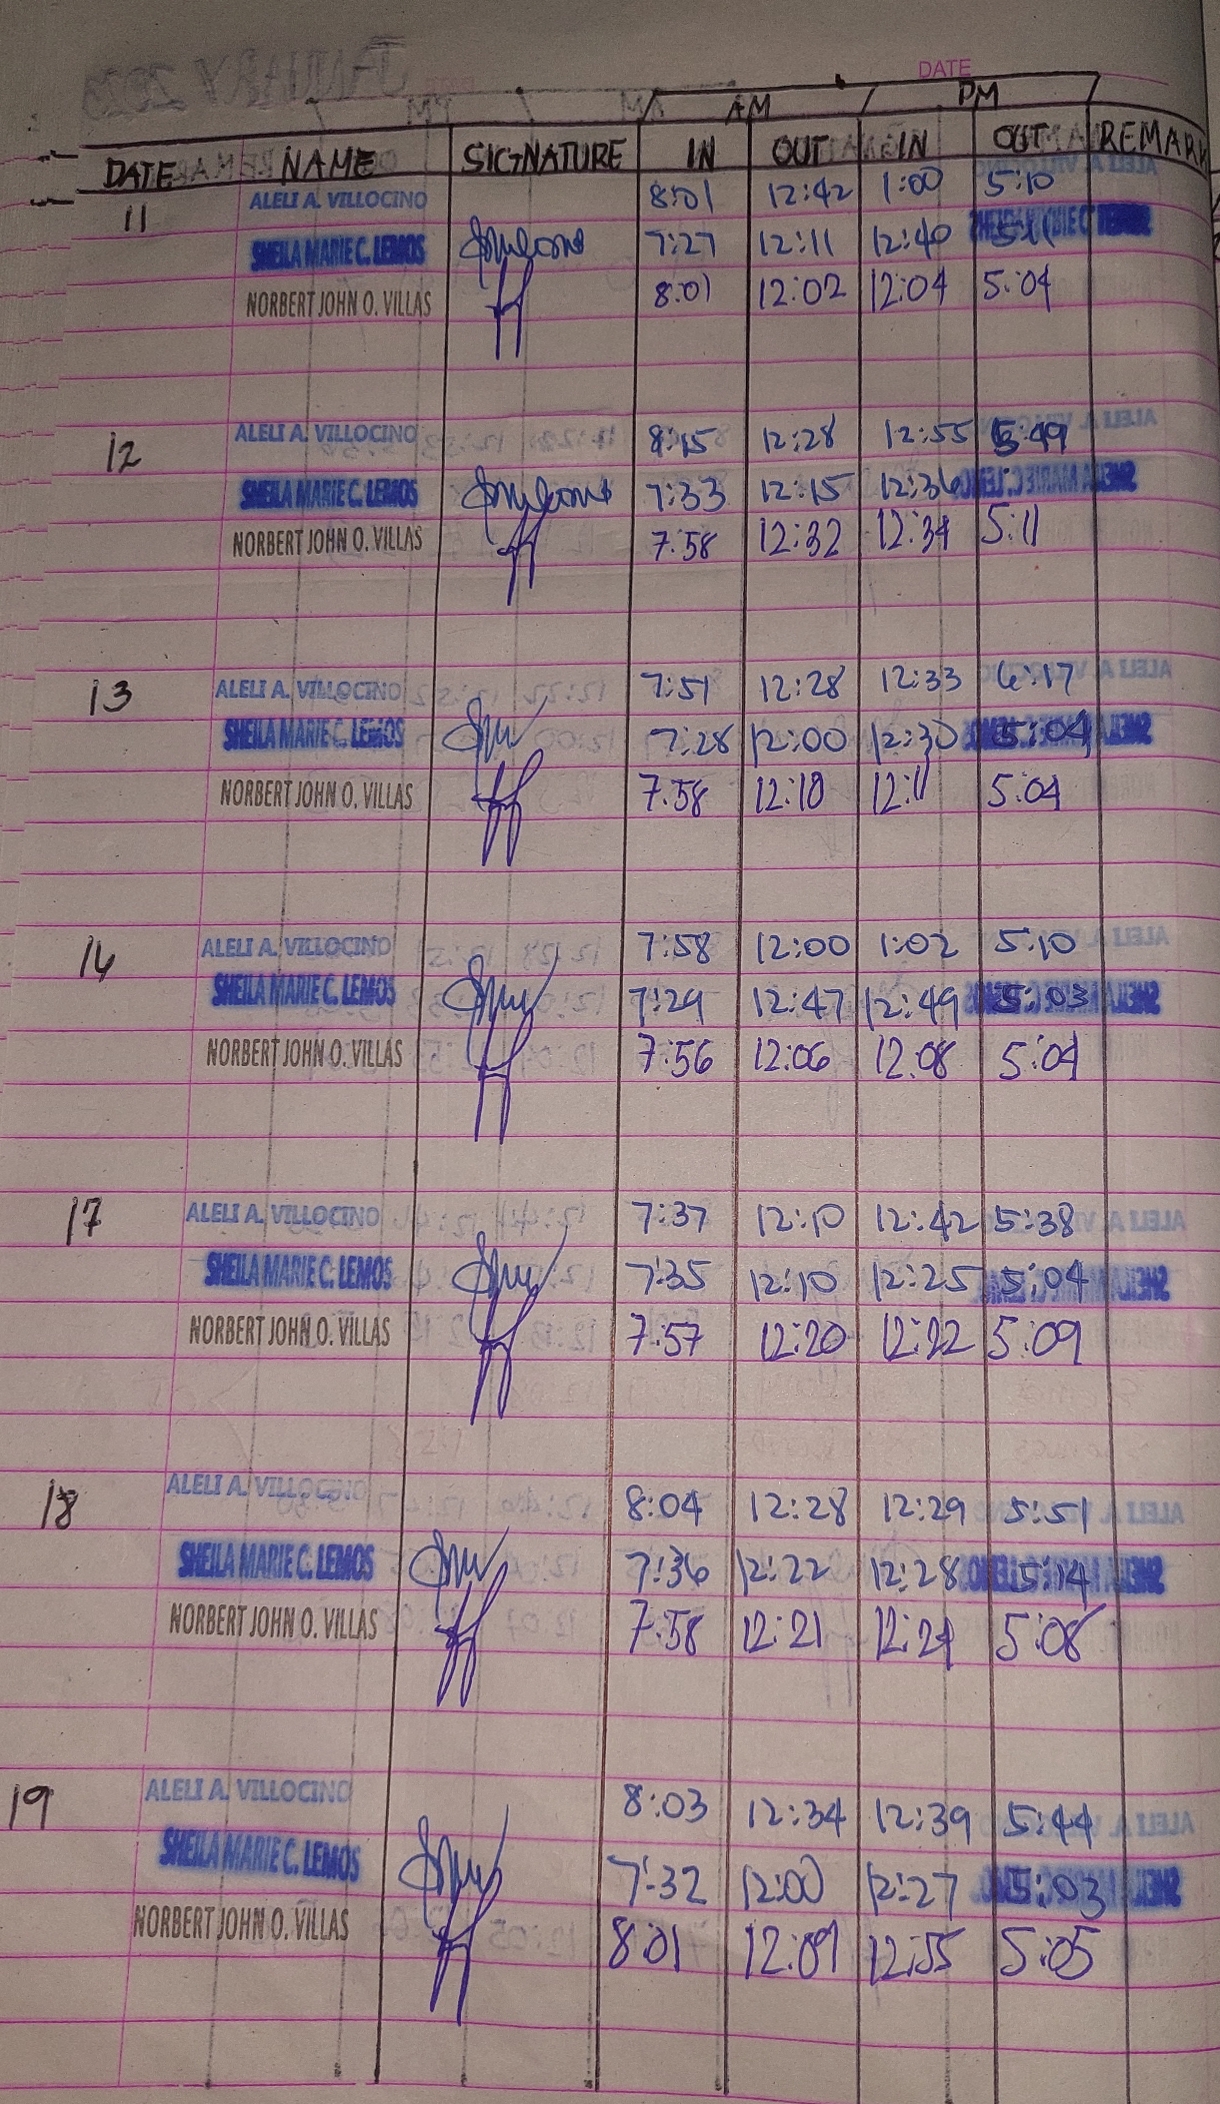 DATE
AM PM
DATE NAME SIGNATURE IN OUT IN OUT REMARK
11 ALELI A. VILLOCINO 8:01 12:42 1:00 5:10
SHEILA MARIE C. LEMOS 7:27 12:11 12:40
NORBERT JOHN O. VILLAS 8:01 12:02 12:04 5:04
12 ALELI A. VILLOCINO 8:15 12:28 12:55 5:49
SHEILA MARIE C. LEMOS 7:33 12:15 12:36
NORBERT JOHN O. VILLAS 7:58 12:32 12:34 5:11
13 ALELI A. VILLOCINO 7:51 12:28 12:33 6:17
SHEILA MARIE C. LEMOS 7:28 12:00 12:30 5:04
NORBERT JOHN O. VILLAS 7:58 12:10 12:11 5:04
16 ALELI A. VILLOCINO 7:58 12:00 1:02 5:10
SHEILA MARIE C. LEMOS 7:29 12:47 12:49 5:03
NORBERT JOHN O. VILLAS 7:56 12:06 12:08 5:04
17 ALELI A. VILLOCINO 7:37 12:10 12:42 5:38
SHEILA MARIE C. LEMOS 7:35 12:10 12:25 5:04
NORBERT JOHN O. VILLAS 7:57 12:20 12:22 5:09
18 ALELI A. VILLOCINO 8:04 12:28 12:29 5:51
SHEILA MARIE C. LEMOS 7:36 12:22 12:28 5:14
NORBERT JOHN O. VILLAS 7:58 12:21 12:24 5:08
19 ALELI A. VILLOCINO 8:03 12:34 12:39 5:44
SHEILA MARIE C. LEMOS 7:32 12:00 12:27 5:03
NORBERT JOHN O. VILLAS 8:01 12:09 12:55 5:05